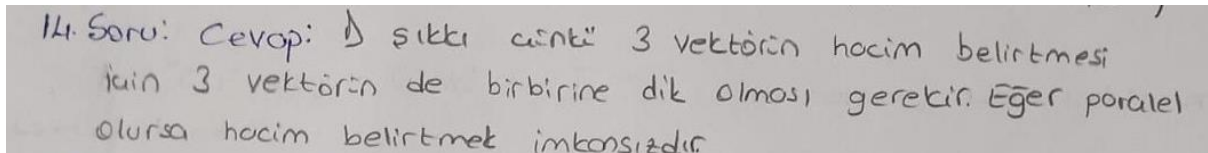 14. Soru: Cevap: D şıkkı çünkü 3 vektörün hacim belirtmesi
için 3 vektörün de birbirine dik olması gerekir. Eğer paralel
olursa hacim belirtmek imkansızdır